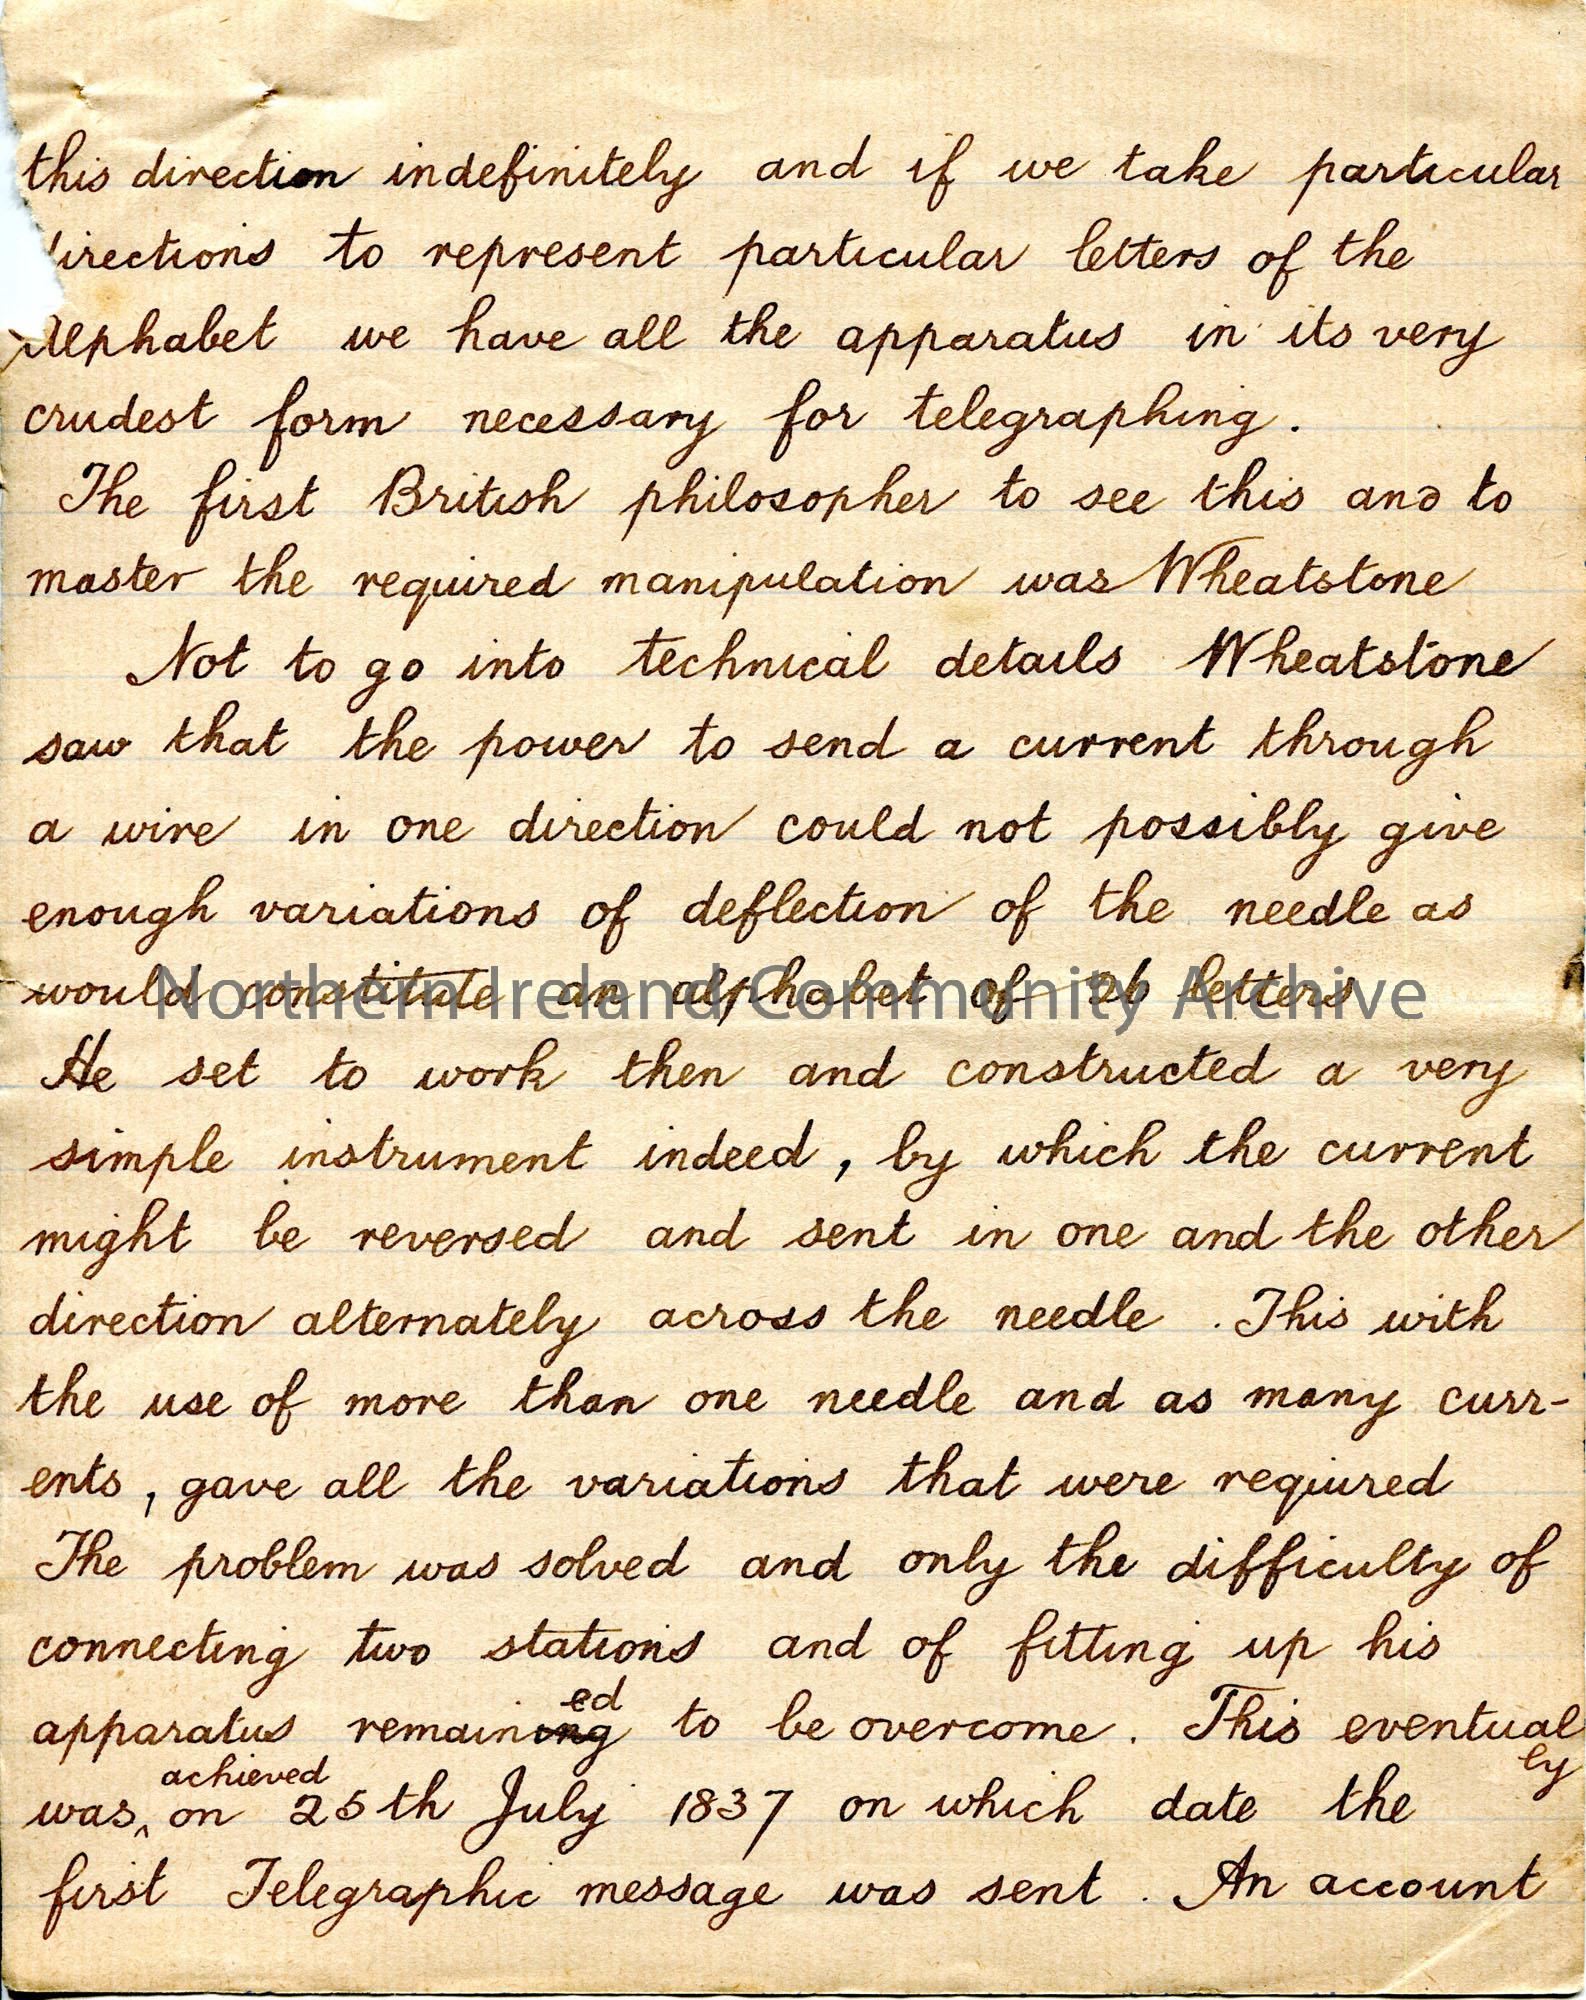 this direction indefinitely and if we take particular
directions to represent particular letters of the
Alphabet we have all the apparatus in its very
crudest form necessary for telegraphing.
The first British philosopher to see this and to
master the required manipulation was Wheatstone
Not to go into technical details Wheatstone
saw that the power to send a current through
a wire in one direction could not possibly give
enough variations of deflection of the needle as
would constitute an alphabet of 26 letters
Northern Ireland Community Archive
He set to work then and constructed a very
simple instrument indeed, by which the current
might be reversed and sent in one and the other
direction alternately across the needle. This with
the use of more than one needle and as many curr-
ents, gave all the variations that were required
The problem was solved and only the difficulty of
connecting two stations and of fitting up his
ed
apparatus remaining to be overcome. This eventual
ly
achieved
was ‸ on 25th July 1837 on which date the
first Telegraphic message was sent. An account